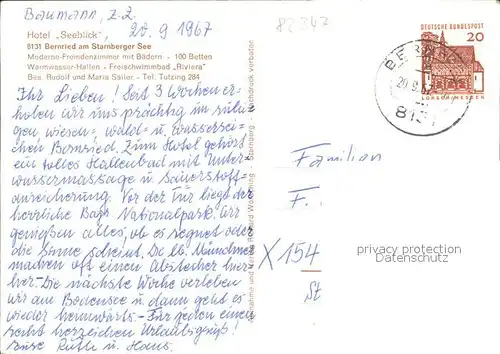 Baumann, z.Z. 20.9.1967
82342
Hotel „Seeblick"
8131 Bernried am Starnberger See
Moderne Fremdenzimmer mit Bädern - 100 Betten
Warmwasser-Hallen - Freischwimmbad „Riviera"
Bes. Rudolf und Maria Sailer - Tel. Tutzing 284
DEUTSCHE BUNDESPOST
20
LORSCH/HESSEN
20.9.67
Ihr Lieben! Seit 3 Wochen er-
holen wir uns prächtig im ruhi-
gen, wiesen-, wald- u. wasserrei-
chen Bernried. Zum Hotel gehört
ein tolles Hallenbad mit Unter-
wassermassage u. Sauerstoff-
anreicherung. Vor der Tür liegt der
herrliche Bay. Nationalpark. Wir
genießen alles, ob es regnet oder
die Sonne scheint. Die lb. Münchner
machen oft einen Abstecher hier-
her. - Die nächste Woche verleben
wir am Bodensee u. dann geht es
wieder heimwärts. - Für jeden einen
recht herzlichen Urlaubsgruß!
Eure Ruth u. Hans.
Familien
F.
X 154
St
privacy protection
Datenschutz